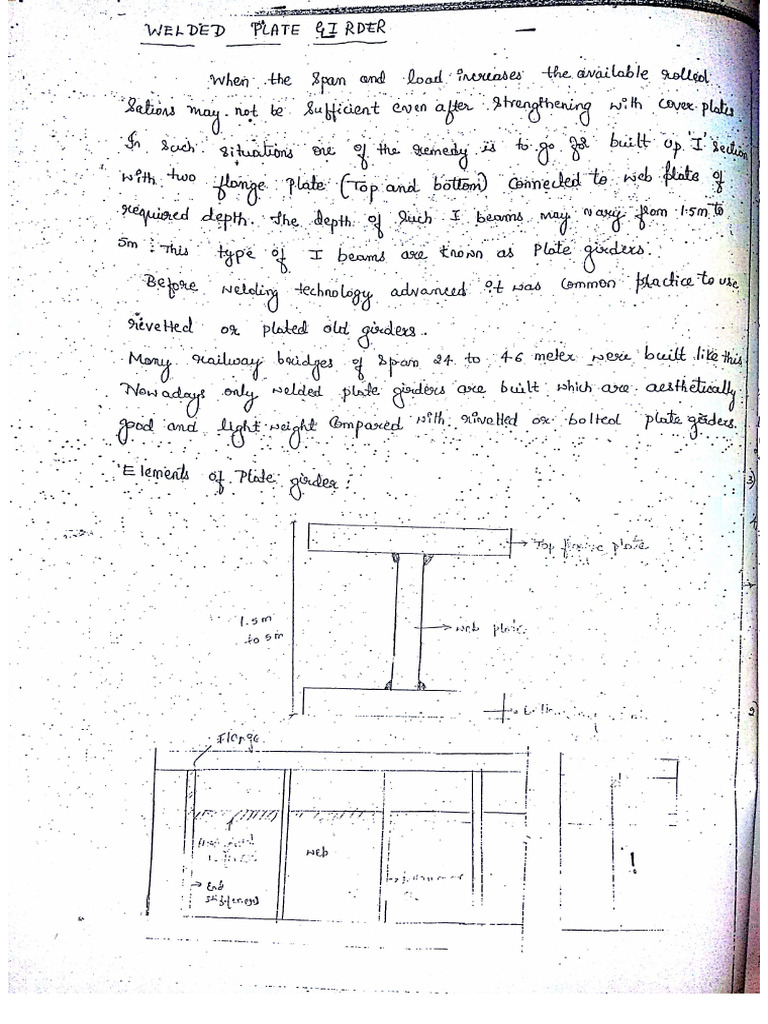 WELDED PLATE GIRDER
When the span and load increases the available rolled
Sations may not be sufficient even after strengthening with cover plates
In such situations one of the remedy is to go for built up 'I' section
with two flange plate (Top and bottom) connected to web plate of
required depth. The depth of such I beams may vary from 1.5m to
5m. This type of I beams are known as plate girders.
Before welding technology advanced it was common practice to use
rievetted or plated old girders.
Many railway bridges of span 24 to 46 meter were built like this
Nowadays only welded plate girders are built which are aesthetically
good and light weight compared with rivetted or bolted plate girders.
Elements of Plate girder:
3)
Top flange plate
1.5m
to 5m
web plate
2)
Flange
web
End
stiffeners